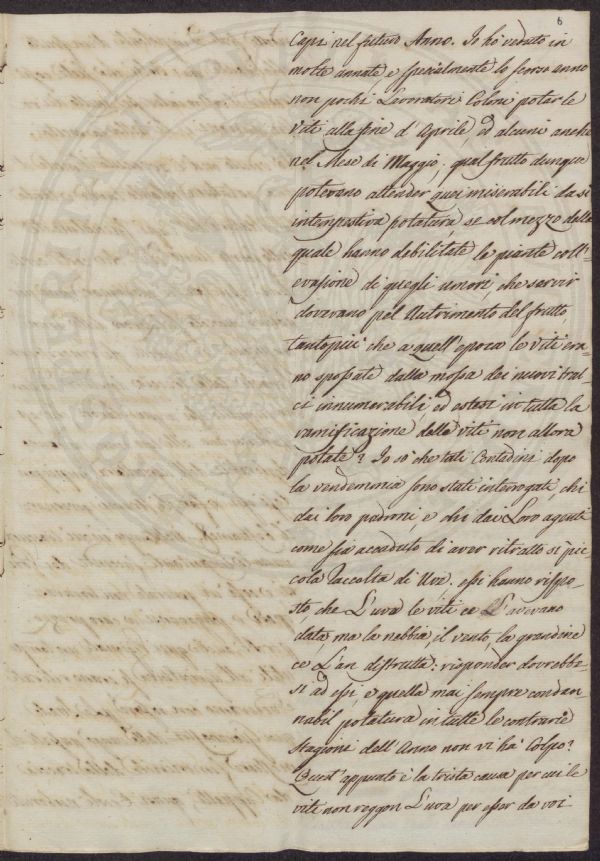 6
Capi nel futuro Anno. Io hò veduto in
molte annate e specialmente lo scorso anno
non pochi Lavoratori Coloni potar le
Viti alla fine d'Aprile, ed alcuni anche
nel Mese di Maggio; qual frutto dunque
potevano attender quei miserabili da sì
intempistiva potatura, se col mezzo della
quale hanno debilitate le piante coll'
evasione di quegli umori, che servir
dovevano pel Nutrimento del frutto
tantopiù che a quell'epoca le Viti era-
no spossate dalla mossa dei nuovi tral-
ci innumerabili, ed estesi in tutta la
ramificazione delle viti non allora
potate? Io sò che tali Contadini dopo
la vendemmia sono stati interrogati, chi
dai loro padroni, e chi dai Loro agenti
come sia accaduto di aver ritratto sì pic
cola Raccolta di Uva. essi hanno rispo-
sto, che L'uva le viti ce L'avevano
data, ma la nebbia, il vento, la grandine
ce L'an distrutta: risponder dovrebbe-
si ad essi, e quella mai sempre condan-
nabil potatura in tutte le contrarie
stagioni dell'Anno non vi hà Colpo?
Quest'appunto è la trista causa per cui le
viti non reggon L'uva per esser da voi